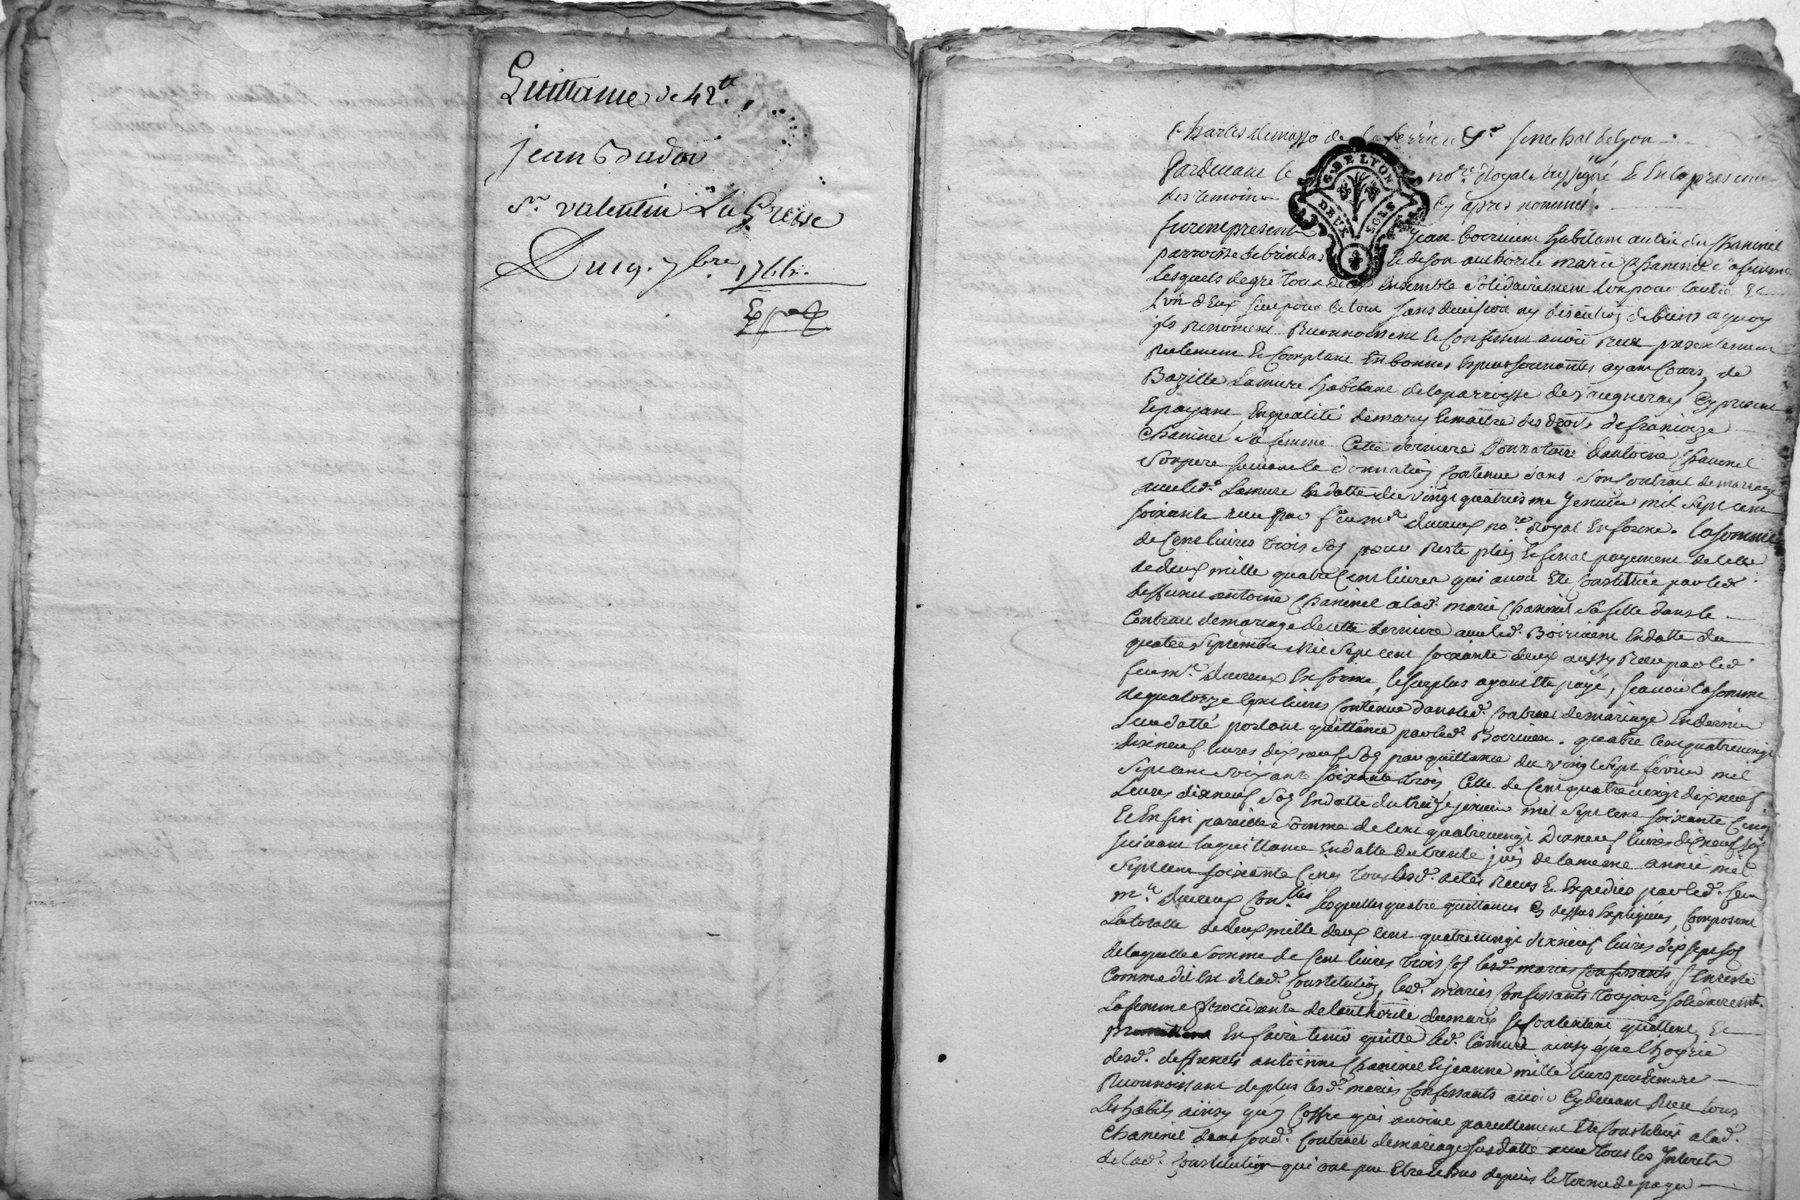 Quittance de 42tt
jean Dudoi
Sr valentin La Greise
Du 19. 7bre 1766.
Expé
Charles demasso de la ferriere Sr senechal de Lyon
G. DE LYON
DEUX SOLS
Pardevant le nore Royal soussigné Et En la presence
des temoins cy apres nommés.
furent presents jean boiricent habitant au lieu du Chaninel
parroisse de brindas Et de son authorité marie Chaninel sa femme
Lesquels de gré tous deux Ensemble solidairement L'un pour L'autre Et
L'un d'Eux seul pour le tout sans division ny discution de biens a quoy
ils Renoncent Reconnoissent Et Confessent avoir Reçu presentement
Reelement Et Comptant En bonnes Especes sonnantes ayant Cours, de
Bazille Lamure habitant de la parroisse de Vaugneray Cy present
Et payant, En qualité de mary Et maitre des droits de françoize
Chaninel sa femme Cette derniere Donnataire d'antoine Chaninel
son pere suivant la donnation Contenue dans son Contrat de mariage
avec led. Lamure En datte du vingt quatrieme Janvier mil sept cent
soixante reçu par feu me duvieux nore Royal En forme. La somme
de Cent livres trois sols pour Reste plein Et final payement de celle
de deux mille quatre Cent livres qui avoit Eté Constituée par led.
deffunt antoine Chaninel a lad. marie Chaninel sa fille dans le
Contract de mariage de cette derniere avec led. Boiricent En datte du
quatre septembre mil sept cent soixante deux aussy Reçu par led.
feu me duvieux En forme, le surplus ayant Eté payé, sçavoir la somme
de quatorze Cent livres Contenue dans led. Contract de mariage En dernier
Lieu datté portant quittance par led. Boiricent. quatre Cent quatre vingt
dix neuf livres dix neuf sols par quittance du vingt sept fevrier mil
sept cent soixante soixante trois, Celle de Cent quatre vingt dix neuf
Livres dix neuf sols En datte du treize janvier mil sept cent soixante Cinq
Et Enfin pareille somme de Cent quatre vingt dix neuf livres dix neuf sols
suivant la quittance En datte du trente juin de la meme année mil
sept cent soixante Cinq tous lesd. actes Recus Et Expediés par led. feu
me duvieux Conlés lesquelles quatre quittances Cy dessus Expliquées, Composent
La totalle de deux mille deux cent quatre vingt dix neuf livres dix sept sols
de laquelle somme de Cent livres trois sols lesd. maries Confessants, En reste
Comme dit Est de lad. Constitution, lesd. maries Confessants toujours solidairement
La femme procedante de l'authorité du mary se Contentent quittent Et
En faire tenir quitte led. Lamure ainsy que l'hoyrie
desd. deffunts antoinne Chaninel Et jeanne mille leurs pere Et mere
Reconnoissant de plus lesd. maries Confessants avoir Cy devant Reçu tous
Les habits ainsy qu'un Coffre qui avoint pareillement Eté Constitués a lad.
Chaninel dans sond. Contract de mariage susdatté avec tous les Interets
de lad. Constitution qui ont pu Etre dus depuis le terme de payer